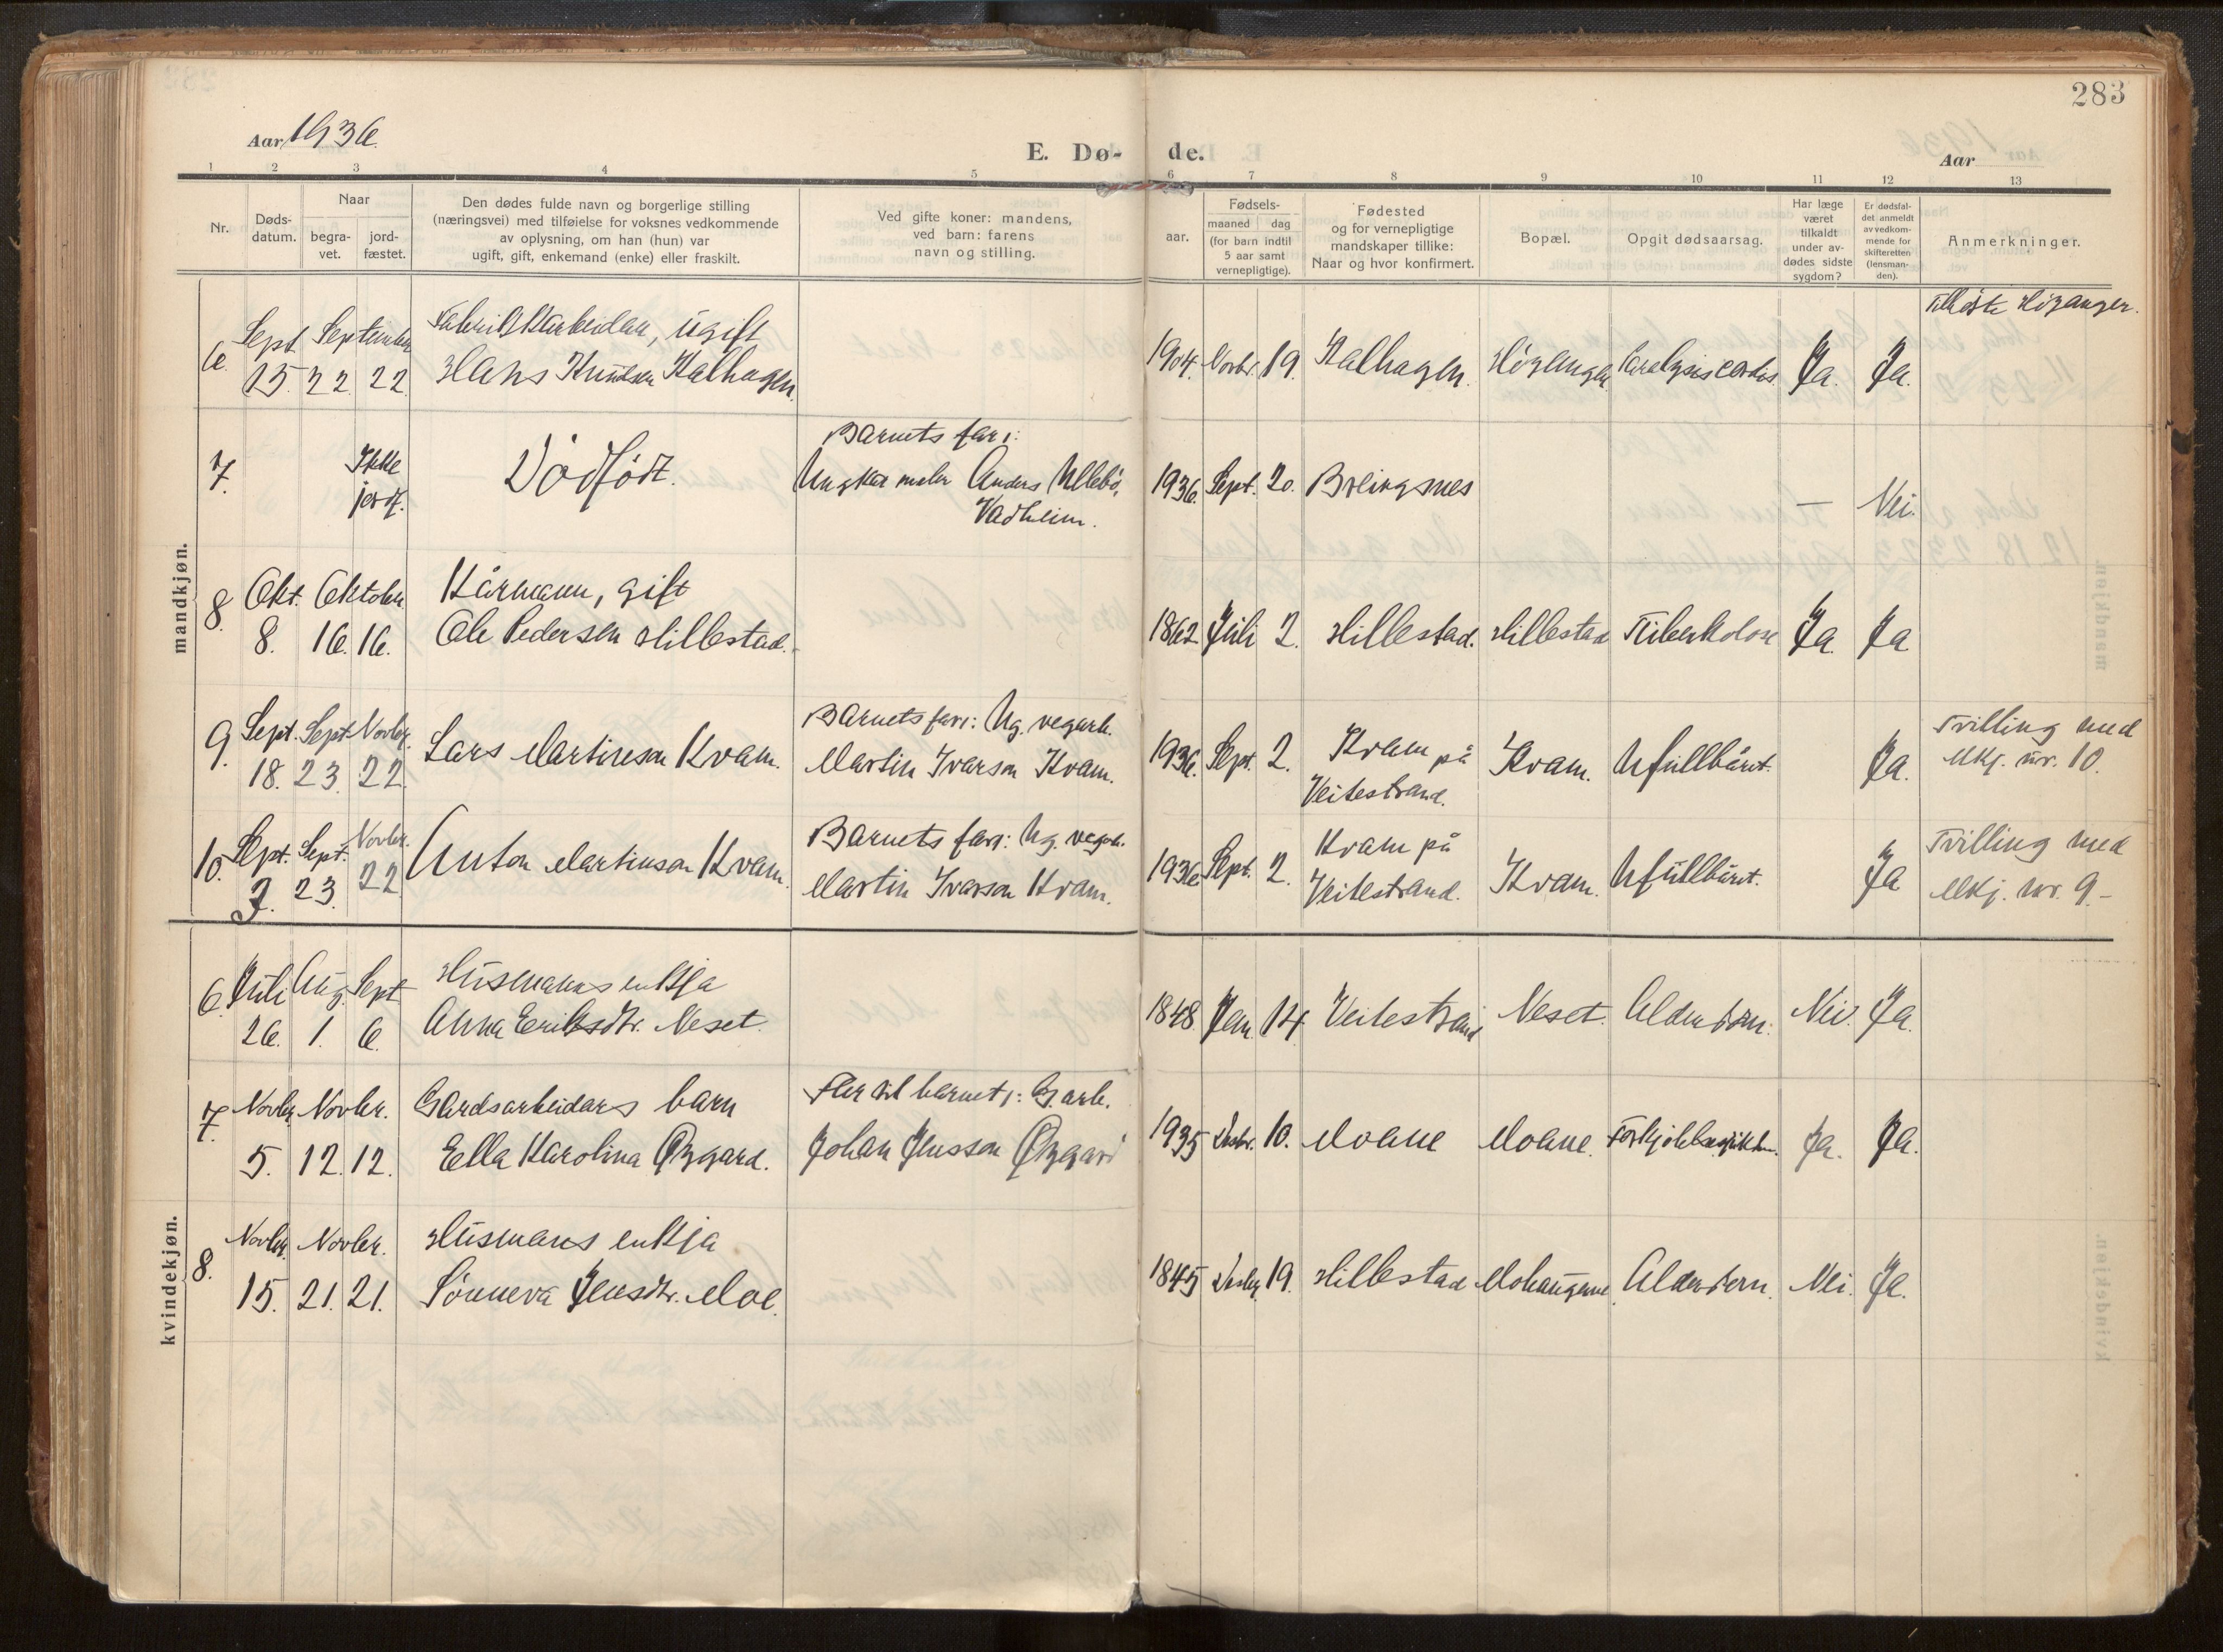 283
Aar 1936.
E. Dø- de.
Aar
1 2 3 4 5 6 7 8 9 10 11 12 13
Nr. Døds- datum. Naar begra- vet. jord- fæstet.
Den dødes fulde navn og borgerlige stilling
(næringsvei) med tilføielse for voksnes vedkommende
av oplysning, om han (hun) var
ugift, gift, enkemand (enke) eller fraskilt.
Ved gifte koner: mandens,
ved barn: farens
navn og stilling.
Fødsels-
aar. maaned dag
(for barn indtil
5 aar samt
vernepligtige).
Fødested
og for vernepligtige
mandskaper tillike:
Naar og hvor konfirmert.
Bopæl.
Opgit dødsaarsag.
Har læge
været
tilkaldt
under av-
dødes sidste
sygdom?
Er dødsfal-
det anmeldt
av vedkom-
mende for
skifteretten
(lensman-
den).
Anmerkninger.
mandkjøn.
Sept. September Fabrikkarbeidar, ugift Høyanger.
6. 15. 22. 22. Hans Knudsen Kalhagen. 1904. Novbr. 19. Kalhagen. Høyanger Paralysis cordis. Ja. Ja.
Barnets far:
7. Ikke jordf. Dödfödt. Ungkar maler Anders Ullebö, 1936. Sept. 20. Breingsnes — Nei.
Vadheim.
Okt. Oktober Kårmann, gift
8. 8. 16. 16. Ole Pedersen Hillestad. 1862 Juli 2. Hillestad. Hillestad Tuberkolose Ja. Ja
Sept. Sept. Novbr. Barnets far: Ug. vegarb. Kram på Tvilling med
9. 18. 23. 22. Lars Martinson Kvam. Martin Ivarson Kvam. 1936. Sept. 2. Veitestrand. Kvam. Ufullbåret. Ja. Mkj. nr. 10.
Sept. Sept. Novbr. Barnets far: Ug. vegarb. Kvam på Tvilling med
10. 3. 23. 22. Anton Martinson Kvam. Martin Ivarson Kvam. 1936 Sept. 2. Veitestrand. Kvam. Ufullbåret. Ja Mkj. nr. 9.-
kvindekjøn.
Juli Aug. Sept Husmanns enkja
6. 26. 1. 6. Anna Eriksdtr. Neset. 1848 Jan. 14. Veitestrand Neset. Alderdom. Nei. Ja.
Novbr. Novbr. Gardsarbeidars barn Far til barnet: G. arb.
7. 5. 12. 12. Ella Karolina Øygard. Johan Jensson Øygard 1935 Desbr. 10. Moane Moane. Ja. Ja.
Novbr. Novbr. Husmans enkja
8. 15. 21. 21. Sönneva Jensdtr. Moe. 1845 Desbr. 19. Hillestad Mohaugane Alderdom. Nei. Ja.